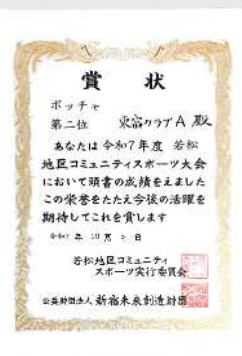 賞状
ボッチャ
第二位 東富クラブA 殿
あなたは令和7年度 若松
地区コミュニティスポーツ大会
において頭書の成績をえました
この栄誉をたたえ今後の活躍を
期待してこれを賞します
令和7年10月5日
若松地区コミュニティ
スポーツ実行委員会
公益財団法人 新宿未来創造財団